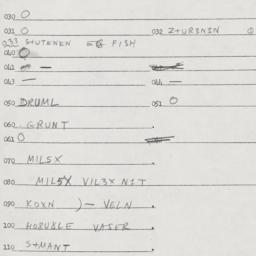 030 O
031 O 032 Z+URSNSN O
033 S+UTENEN EG FISH
040 O
042 —
043 — 044 —
050 DRUML 051 O
060 GRUNT
061 O
070 MILSX
080 MILSX VIL3X NIT
090 KOXN )— VELN
100 HOBUBLE VATER
110 S+MANT